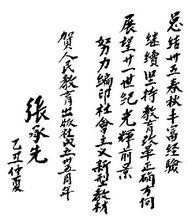 总结卅五春秋丰富经验
继续坚持教育改革正确方向
展望廿一世纪光輝前景
努力編印社會主义新型教材
賀人民教育出版社成立卅五周年
張承先
乙丑仲夏